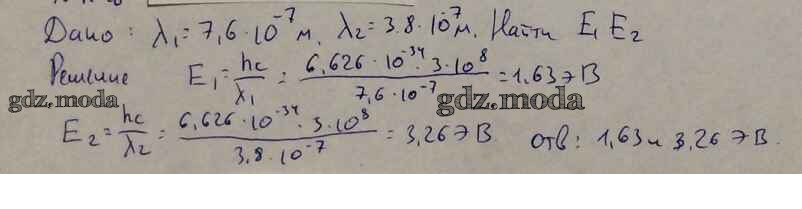 Дано: λ₁=7,6·10⁻⁷м. λ₂=3.8·10⁻⁷м. Найти E₁ E₂
Решение E₁=hc/λ₁=6,626·10⁻³⁴·3·10⁸/7,6·10⁻⁷=1,63эВ
gdz.moda gdz.moda
E₂=hc/λ₂=6,626·10⁻³⁴·3·10⁸/3,8·10⁻⁷=3,26эВ отв: 1,63 и 3,26 эВ.